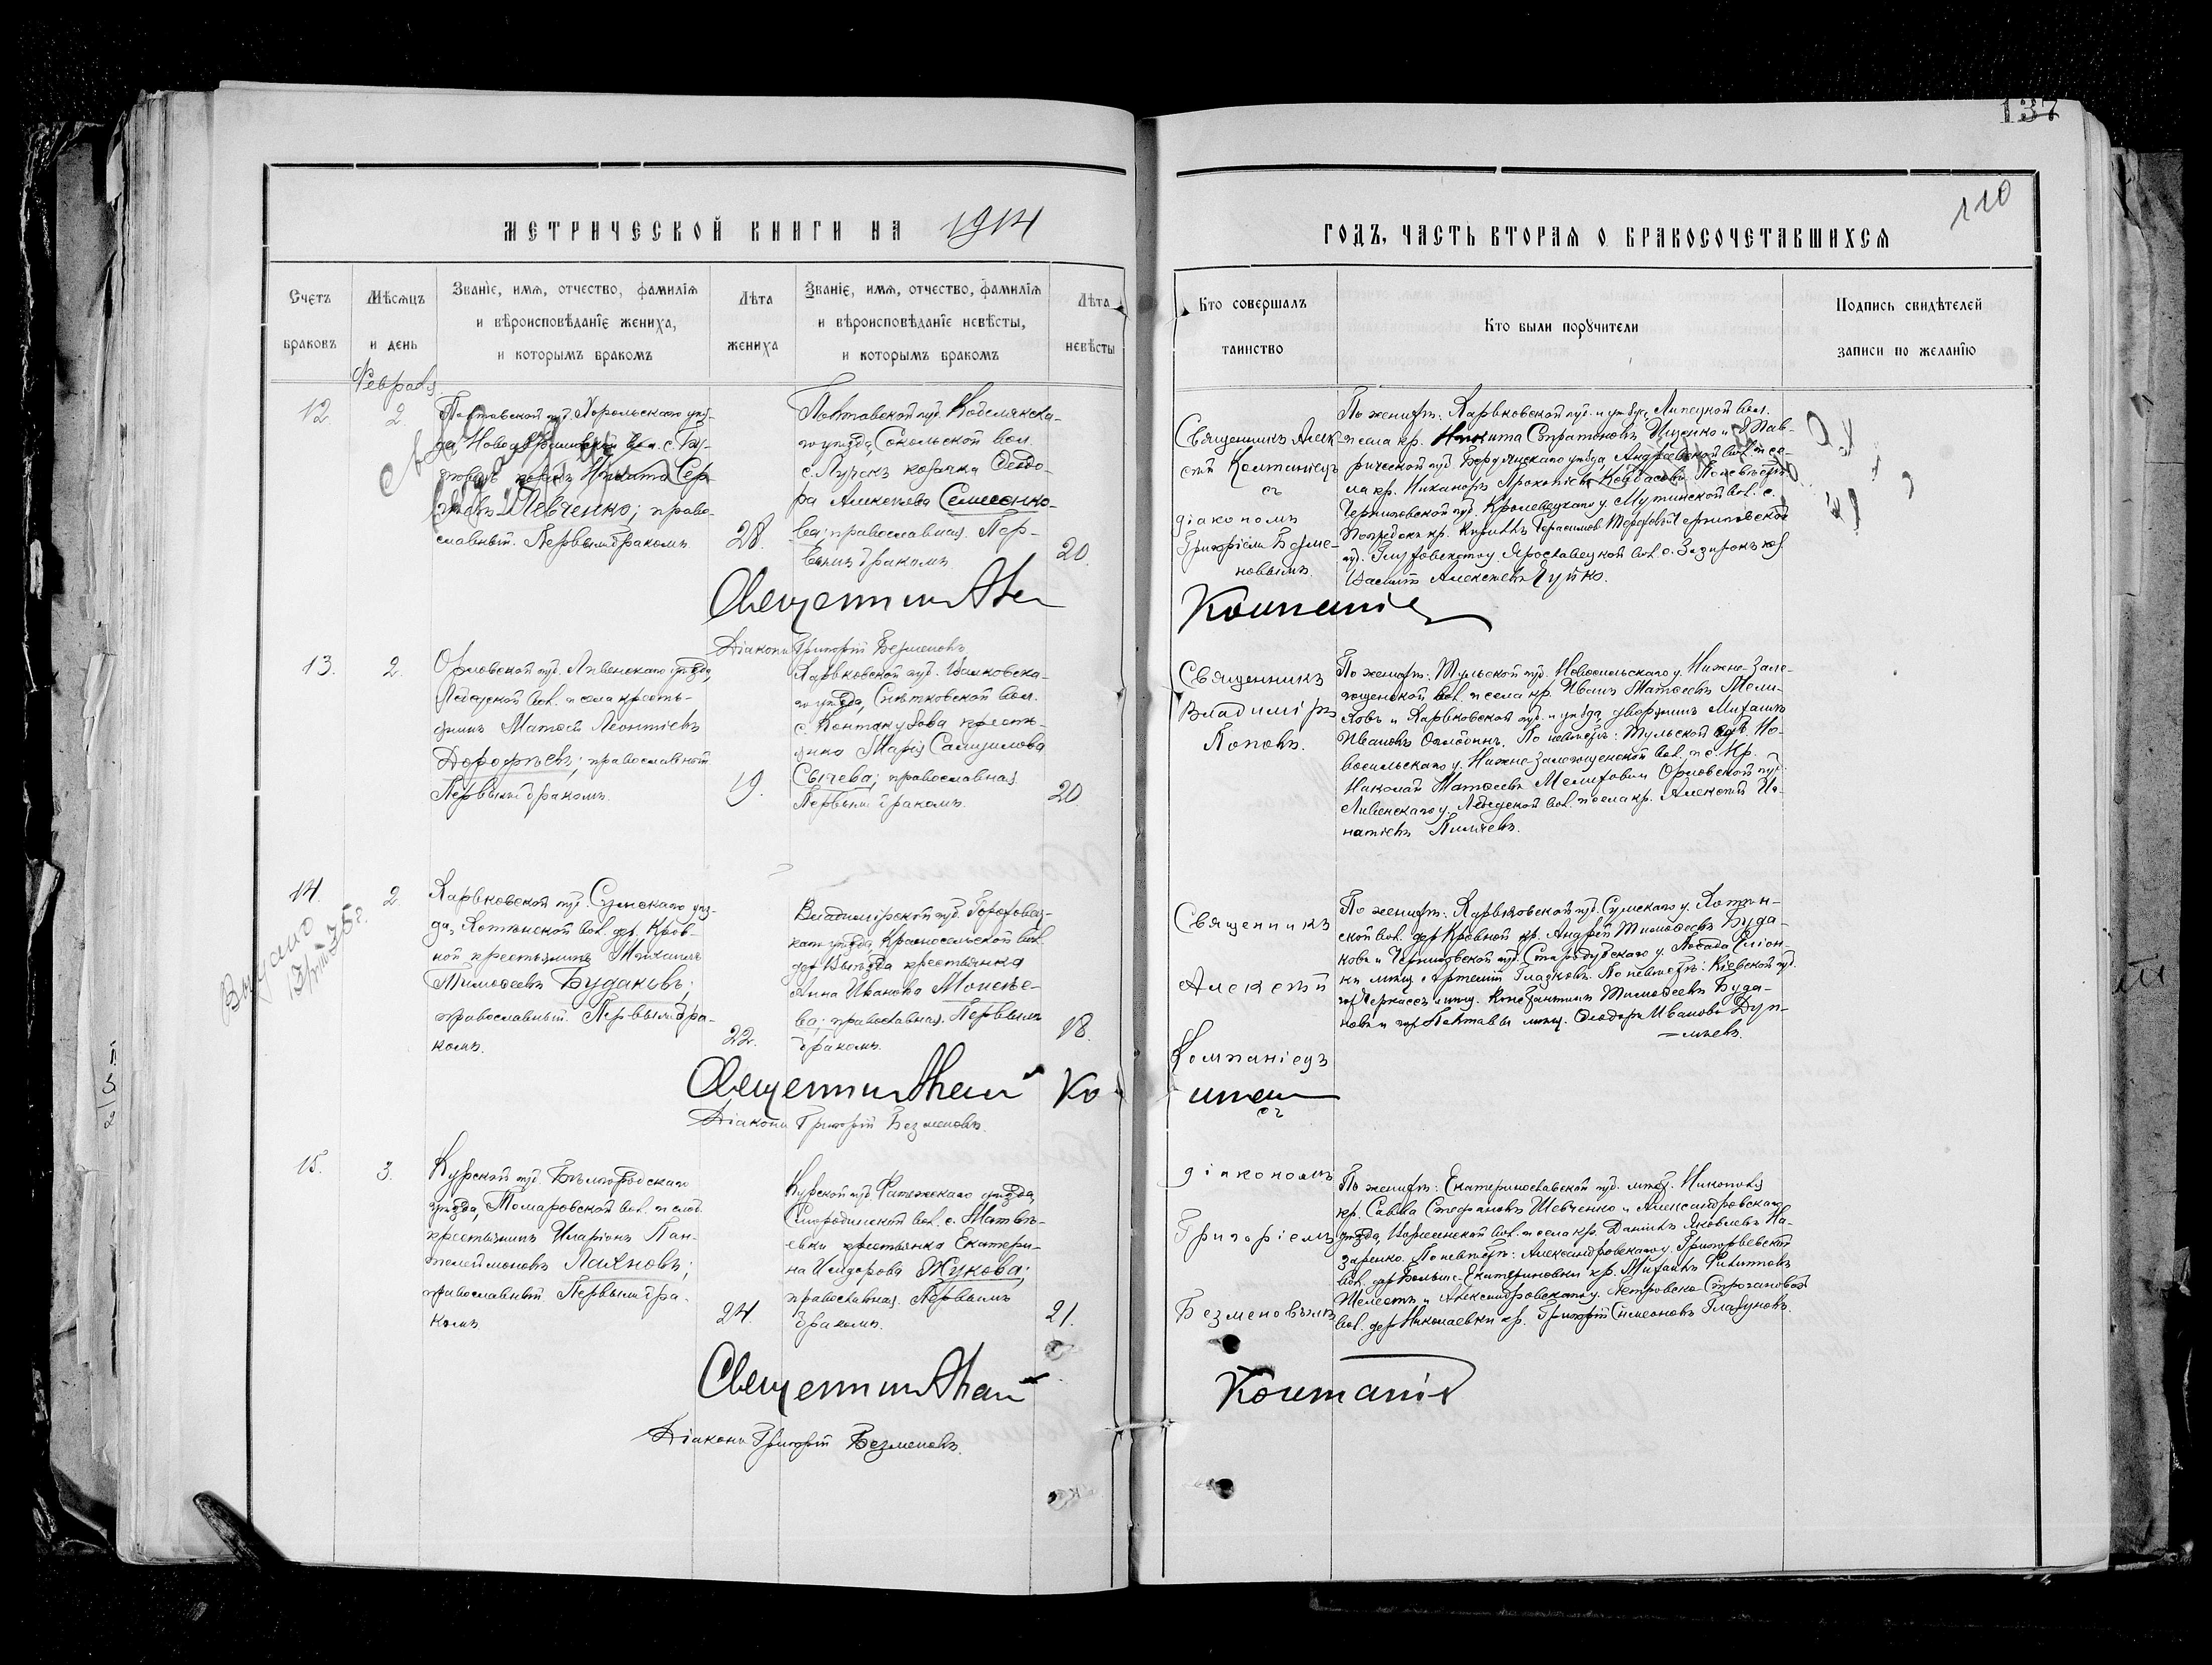 137
110
МЕТРИЧЕСКОЙ КНИГИ НА 1914
ГОДЪ, ЧАСТЬ ВТОРАЯ О БРАКОСОЧЕТАВШИХСЯ
Счетъ
браковъ
Мѣсяцъ
и день
Званіе, имя, отчество, фамилія
и вѣроисповѣданіе жениха,
и которымъ бракомъ
Лѣта
жениха
Званіе, имя, отчество, фамилія
и вѣроисповѣданіе невѣсты,
и которымъ бракомъ
Лѣта
невѣсты
Кто совершалъ
таинство
Кто были поручители
Подпись свидѣтелей
записи по желанію
Февраля
12.
2.
Полтавской губ. Хорольскаго уѣз-
казакъ Никита Сер-
Левченко; право-
славный. Первымъ бракомъ.
28.
Полтавской губ. Кобелякска-
го уѣзда, Сокольской вол.
с. Лучекъ козачка Ѳеодо-
ра Алексѣева Симоенко-
ва; православная. Пер-
вымъ бракомъ.
20.
Священникъ Алек-
сѣй Компаніецъ
съ
діакономъ
Григоріемъ Безме-
новымъ.
По женихѣ: Харьковской губ. и уѣзда, Липецкой вол.
и села кр. Никита Стратоновъ Ищенко и Тав-
рической губ. Бердянскаго уѣзда, Андреевской вол. и се-
ла кр. Никаноръ Прокопіевъ
Черниговской губ. Кролевецкаго у. Мутинской вол. с.
кр. Кириллъ Герасимов Черниговской
губ. Глуховскаго у. Ярославецкой вол. с. Зазирокъ
Василій Алексѣевъ
Священник Але
Компаніе
Діаконъ Григорій Безменовъ
13.
2.
Орловской губ. Ливенскаго уѣзда,
вол. и села кресть-
янинъ Матвѣй Леонтіевъ
Дорофѣевъ; православный
Первымъ бракомъ.
19.
Харьковской губ. Валковска-
го уѣзда, Снѣжковской вол.
с. Контакузова кресть-
янка Марія Самуилова
Сычева; православная
Первымъ бракомъ.
20.
Священникъ
Владиміръ
Поповъ.
По женихѣ: Тульской губ. Новосильскаго у. Нижне-Зале-
гощенской вол. и села кр. Иванъ Матвѣевъ Мели-
ховъ и Харьковской губ. и уѣзда, дворянинъ Михаилъ
Ивановъ По невѣстѣ: Тульской губ. Но-
восильскаго у. Нижне Залегощенской вол. и с. кр.
Николай Матвѣевъ Мелихов и Орловской губ.
Ливенскаго у. вол. и села кр. Алексѣй Иг-
натіевъ
14.
2.
Выдано
Харьковской губ. Сумскаго уѣз-
да, Хотѣнской вол. дер. Кров-
ной крестьянинъ Михаилъ
Тимоѳеевъ Будаковъ;
православный. Первымъ бра-
комъ.
22.
Владимірской губ. Гороховец-
каго уѣзда, Красносельской вол.
дер. Выѣзда крестьянка
Анна Иванова Моисѣе-
ва; православная. Первымъ
бракомъ.
18.
Священникъ
Алексѣй
Компаніецъ
По женихѣ: Харьковской губ. Сумскаго у. Хотѣн-
ской вол. дер. Кровной кр. Андрей Тимоѳеевъ Буда-
ковъ и Черниговской губ. Стародубскаго у. Посада Еліон-
ки мѣщ. Артемій Глазковъ. По невѣстѣ: Кіевской губ.
гор. Черкасъ мѣщ. Константинъ Тимоѳеевъ Буда-
ковъ и гор. Полтавы мѣщ. Ѳеодоръ Ивановъ
Священник Алекѣй Ко
мпан
Діаконъ Григорій Безменовъ.
съ
15.
3.
Курской губ. Бѣлгородскаго
уѣзда, Томаровской вол. и слоб.
крестьянинъ Иларіонъ Пан-
телеймоновъ Лахновъ;
православный Первымъ бра-
комъ.
24.
Курской губ. Фатежскаго уѣзда,
Смородинской вол. с. Матвѣ-
евки крестьянка Екатери-
на Исидорова Жукова;
православная. Первымъ
бракомъ.
21.
діакономъ
Григоріемъ
Безменовымъ
По женихѣ: Екатеринославской губ. мѣст. Никополя
кр. Савва Стефановъ Шевченко и Александровскаго
уѣзда, вол. и села кр. Даніилъ Яковлевъ На-
заренко. По невѣстѣ: Александровскаго у. Григорьевской
вол. дер. Больше-Екатериновки кр. Михаилъ Филипповъ
Шелестъ и Александровскаго у. Петровско-Строгановской
вол. дер. Николаевки кр. Григорій Симеоновъ Глазуновъ.
Священник
Компаніе
Діаконъ Григорій Безменовъ.